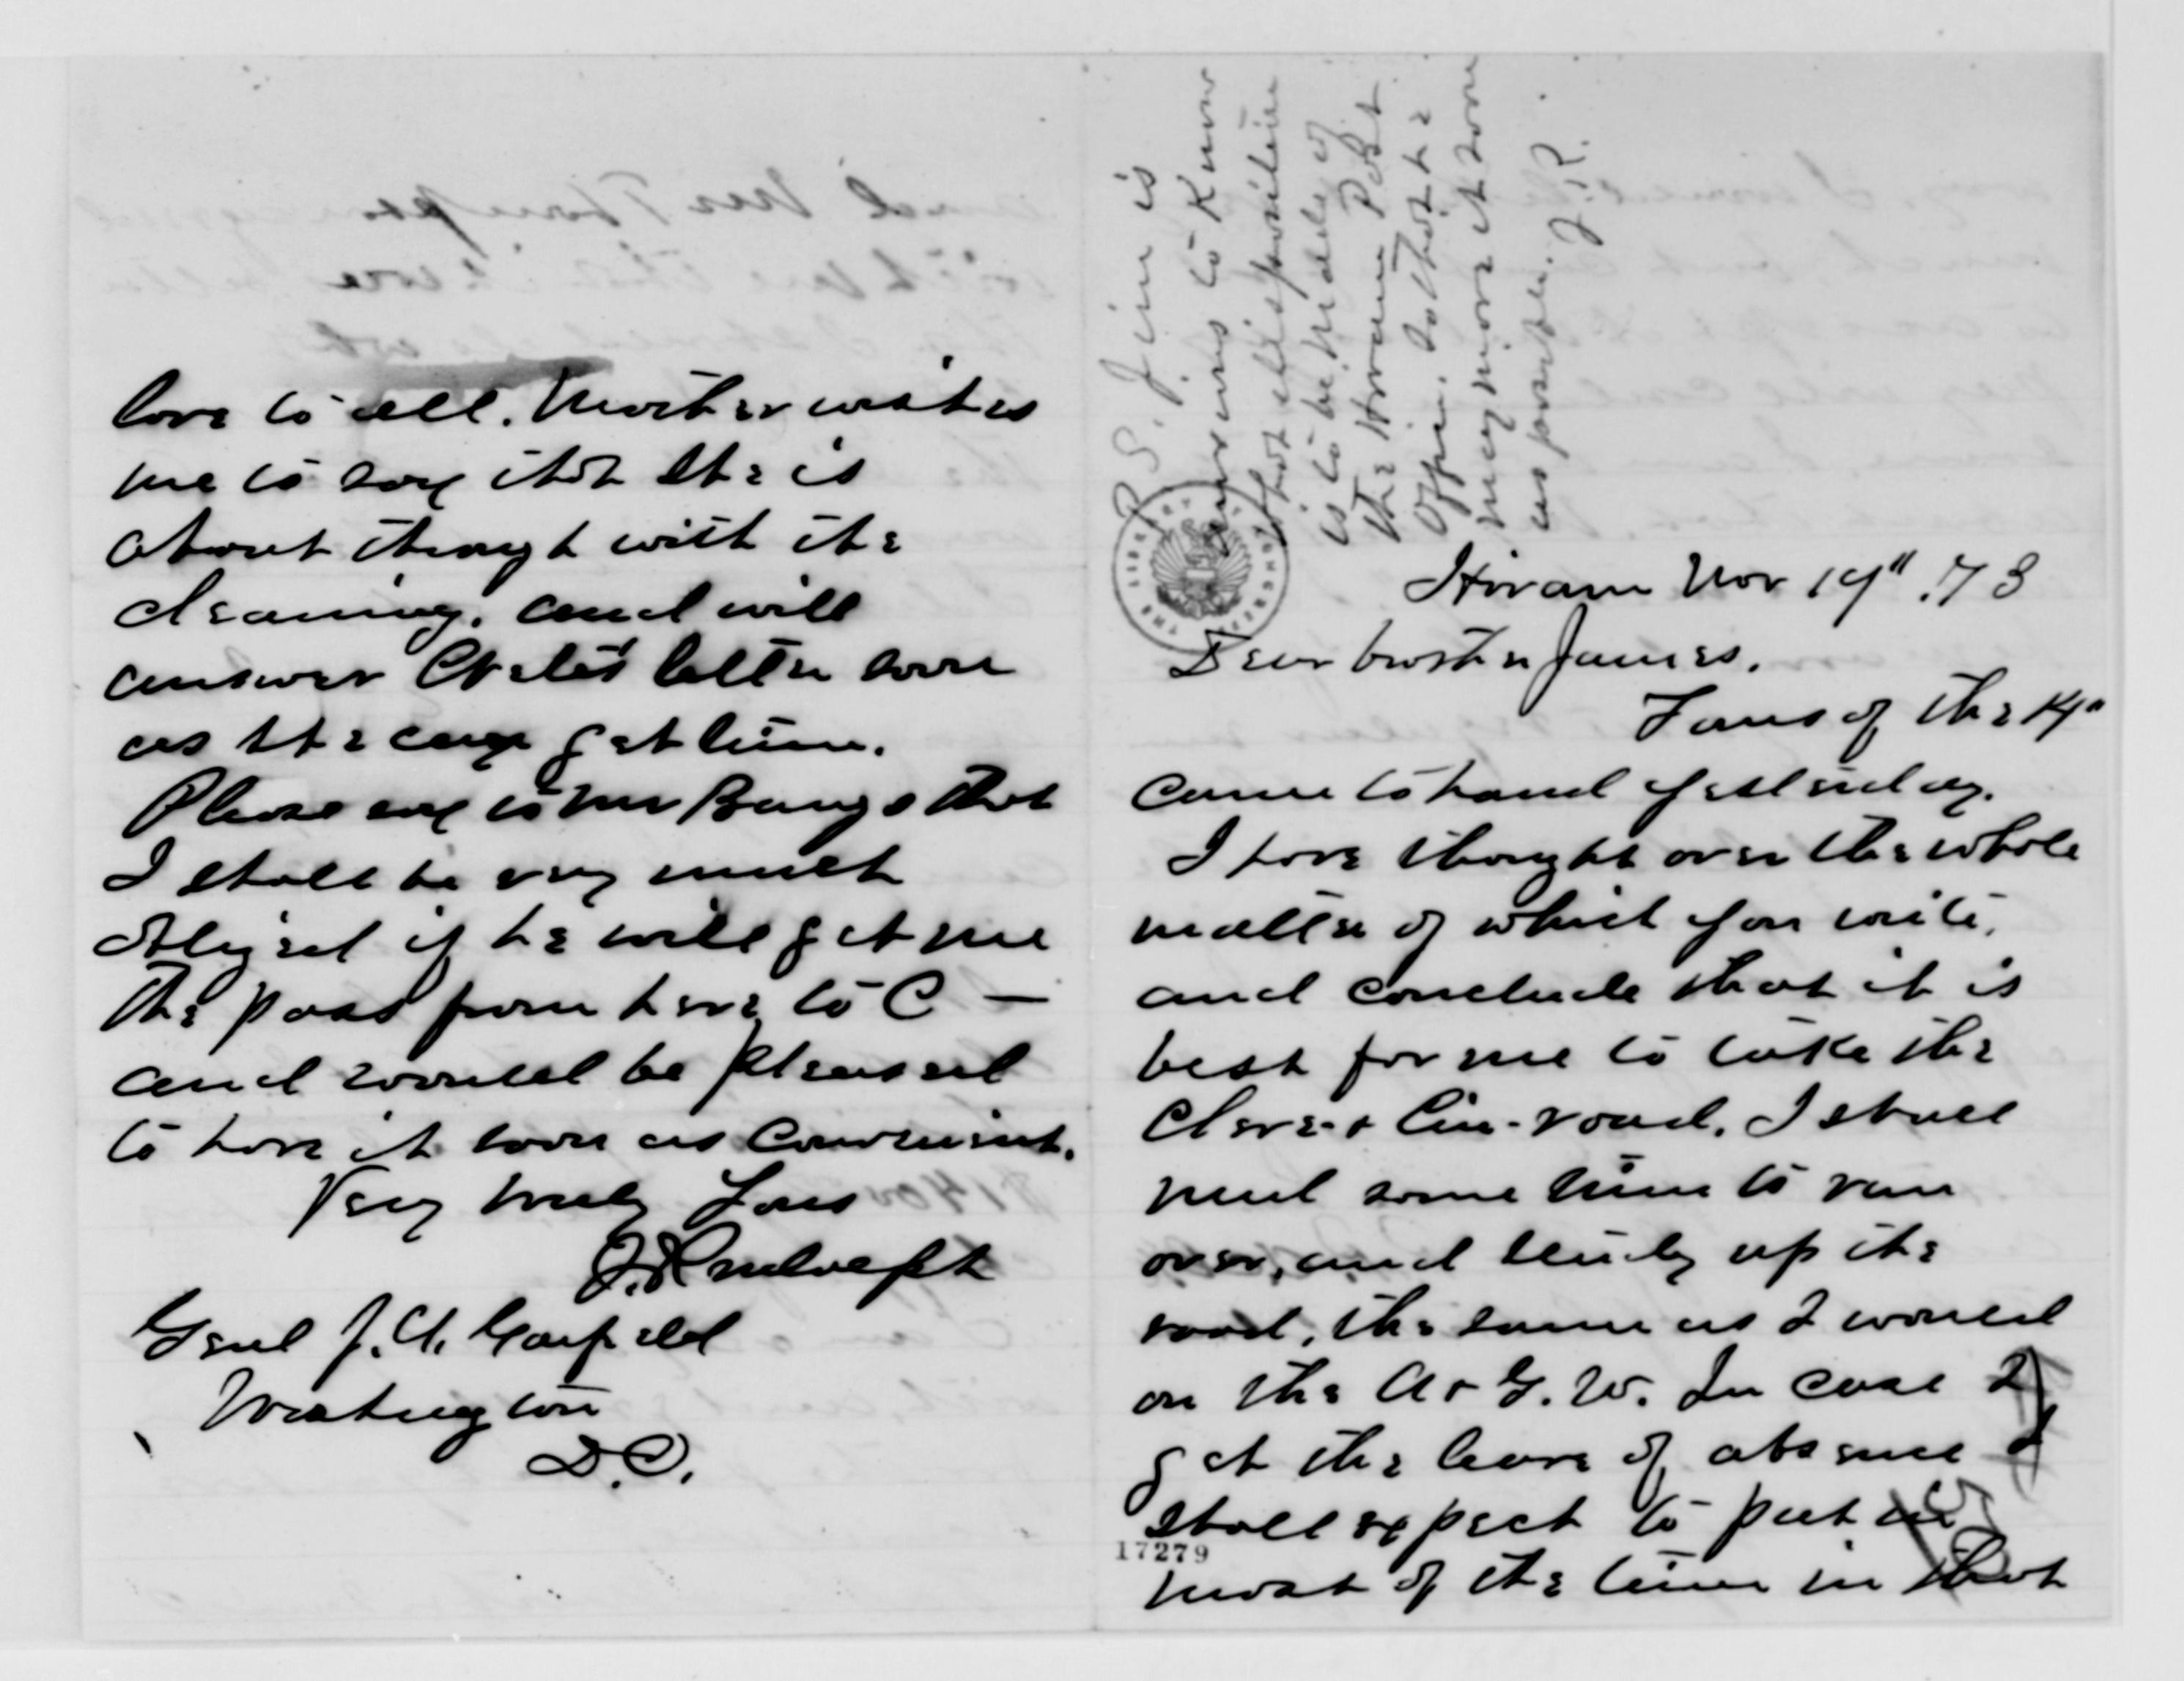 P.S. Jim is
anxious to know
what disposition
is to be made of
the Hiram Post
Office. So that he
may move it soon
as possible. J.R.
Hiram Nov 19" .73
Dear brother James.
Yours of the 14"
came to hand yesterday.
I have thought over the whole
matter of which you write,
and conclude that it is
best for me to take the
Cleve- & Cin- road. I shall
need some time to run
over, and study up the
road, the same as I would
on the A & G. W. In case I
get the leave of absence I
shall expect to put in
most of the time in that
love to all. Mother wishes
me to say that she is
about through with the
cleaning, and will
answer Crete's letter soon
as she can get time.
Please say to Mr Bangs that
I shall be very much
obliged if he will get me
the pass from here to C —
and would be pleased
to have it soon as convenient.
Very truly Yours
J. Rudolph
Genl J. A. Garfield
Washington
D.C.
THE LIBRARY CONGRESS
17279